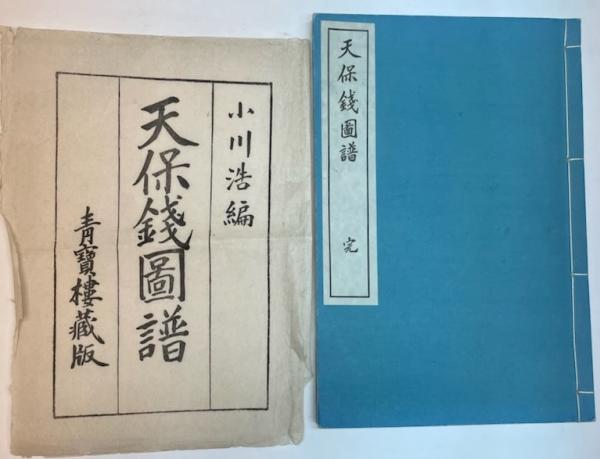 小川浩編
天保錢圖譜
青寶樓藏版
天保錢圖譜
完